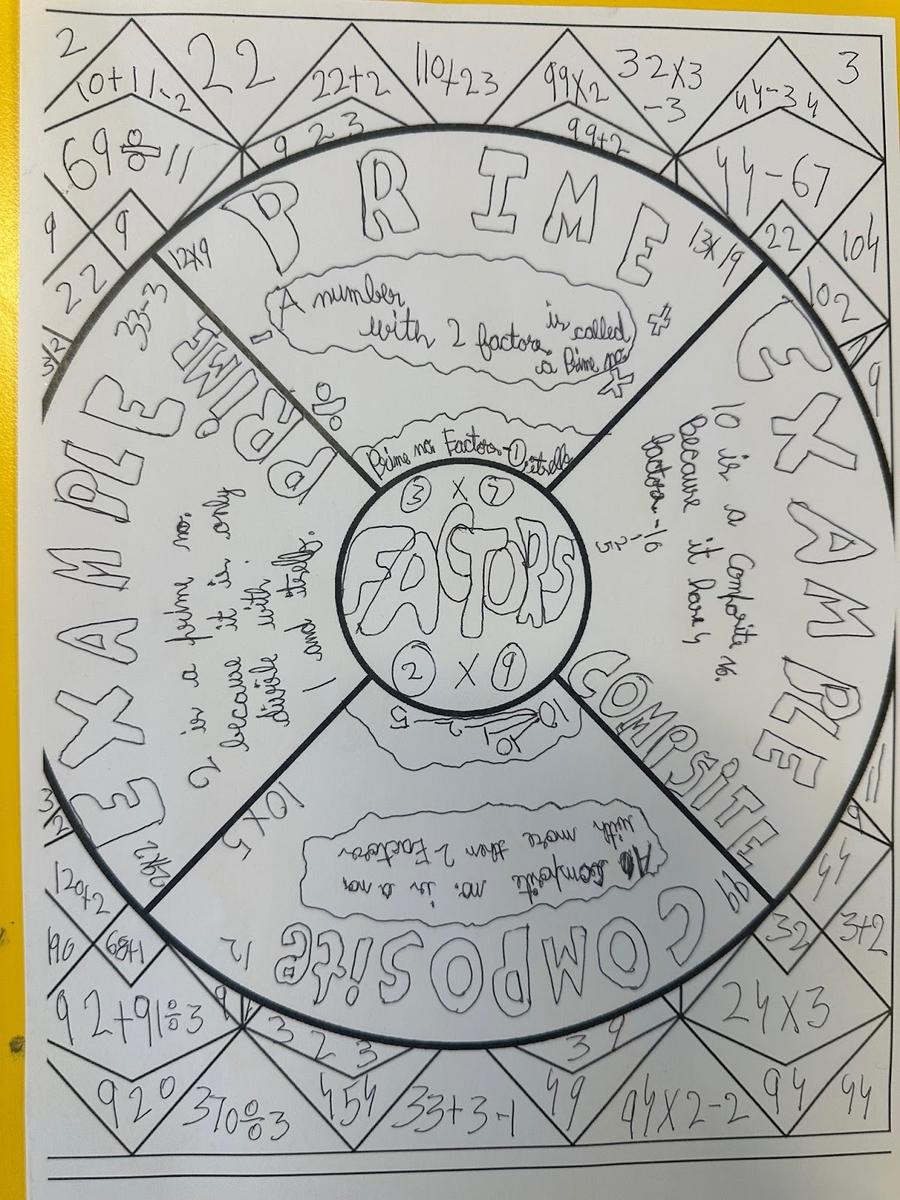 2
10+11-2
22
22+2
110+23
99x2
32x3
-3
44-34
3
69÷11
9 2 3
99+2
44-67
9
9
22
3/2
22
104
102
9
PRIME
12x9
13x19
A number
with 2 factors is called
a Prime no.
- + x ÷
Prime no. Factors - 1, itself
EXAMPLE
33-3
PRIME
2 is a prime no.
because it is only
divisle with
1 and itself.
29x2
EXAMPLE
10 is a Composite no.
Because it has 4
factors - 10
5, 2
COMPSiTE
3 x 7
FACTORS
2 x 9
10
10 1
2 5
10x5
A composite no. is a no.
with more then 2 Factors
COMPOSite
12
99
3/2
120+2
190
68+1
92+91÷3
9
920
370÷3
3 2 3
454
33+3-1
3 9
49
94x2-2
94
94
24x3
32
3+2
44
9
11